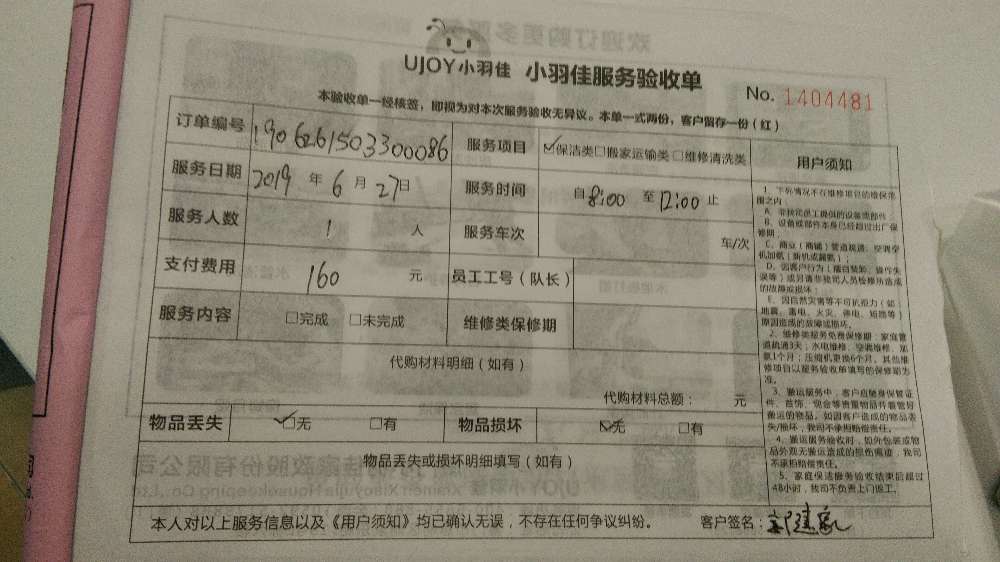 UJOY小羽佳 小羽佳服务验收单
No. 1404481
本验收单一经核签，即视为对本次服务验收无异议。本单一式两份，客户留存一份（红）
订单编号 19062615033000086 服务项目 ☑保洁类□搬家运输类□维修清洗类 用户须知
服务日期 2019 年 6 月 27日 服务时间 自8:00 至 12:00 止
服务人数 1 人 服务车次 车/次
支付费用 160 元 员工工号（队长）
服务内容 □完成 □未完成 维修类保修期
代购材料明细（如有）
代购材料总额： 元
物品丢失 ☑无 □有 物品损坏 ☑无 □有
物品丢失或损坏明细填写（如有）
本人对以上服务信息以及《用户须知》均已确认无误，不存在任何争议纠纷。 客户签名：
1、下列情况不在维修项目的维保范
围之内
A、非我司员工提供的设备或部件
B、设备或部件本身已经超过出厂保
修期；
C、商业（商铺）管道疏通、空调空
机加氨（新机或漏氨）；
D、因客户行为（擅自装卸、操作失
误等）或另请非我司人员检修所造成
的故障或损坏；
E、因自然灾害等不可抗拒力（如
地震、雷电、火灾、停电、短路等）
原因造成的故障或损坏。
2、维修类服务免费保修期：家庭管
道疏通3天；水电维修、空调维修、加
氨1个月；压缩机更换6个月。其他维
修项目以服务验收单填写的保修期为
准。
3、搬运服务中，客户应随身保管证
件、首饰、现金等贵重物品并看管好
搬运的物品。如因客户造成的物品丢
失/损坏，我司不承担赔偿责任。
4、搬运服务验收时，如外包装或物
品外观无搬运造成的损伤痕迹，我司
不承担赔偿责任。
5、家庭保洁服务验收结束后超过
48小时，我司不负责上门返工。